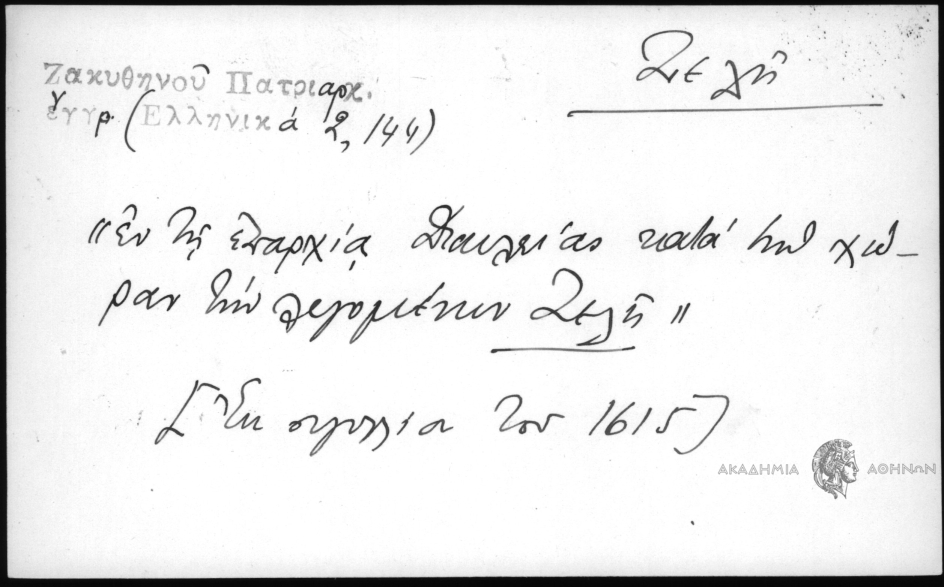 Στελῆ
Ζακυθηνοῦ Πατριαρχ.
ἔγγρ. (Ἑλληνικά 2, 144)
"ἐν τῇ ἐπαρχίᾳ Δαυλείας κατά τήν χώ-
ραν τήν λεγομένην Στελῆ"
[Ἐκ σιγιλλίου τοῦ 1615]
ΑΚΑΔΗΜΙΑ ΑΘΗΝΩΝ